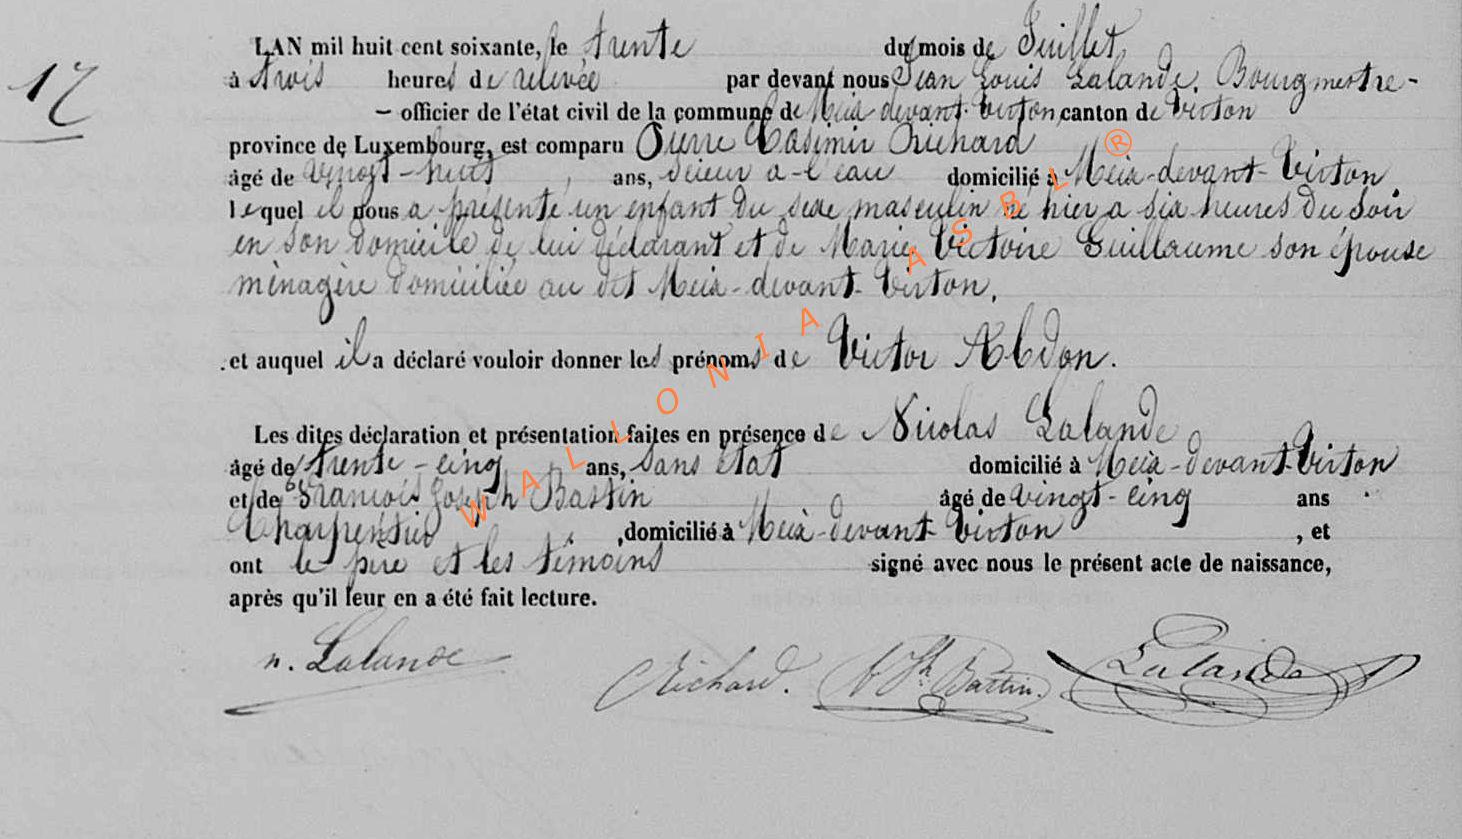 17
L'AN mil huit cent soixante, le trente du mois de Juillet
à trois heures de relevée par devant nous Jean Louis Lalande, Bourgmestre -
— officier de l'état civil de la commune de Meix-devant-Virton, canton de Virton
province de Luxembourg, est comparu Pierre Casimir Richard
âgé de vingt-huit, ans, Scieur à-l'eau domicilié à Meix-devant-Virton,
lequel il nous a présenté un enfant du sexe masculin né hier à six heures du soir
en son domicile de lui déclarant et de Marie Victoire Guillaume son épouse
ménagère domiciliée au dit Meix-devant-Virton.
et auquel il a déclaré vouloir donner les prénoms de Victor Abdon.
Les dites déclaration et présentation faites en présence de Nicolas Lalande
âgé de trente-cinq ans, sans état domicilié à Meix-devant-Virton
et de François Joseph Bastin âgé de vingt-cinq ans
Charpentier, domicilié à Meix-devant-Virton, et
ont le père et les témoins signé avec nous le présent acte de naissance,
après qu'il leur en a été fait lecture.
n. Lalande Richard. Bastin. Lalande
WALLONIA ASBL ®